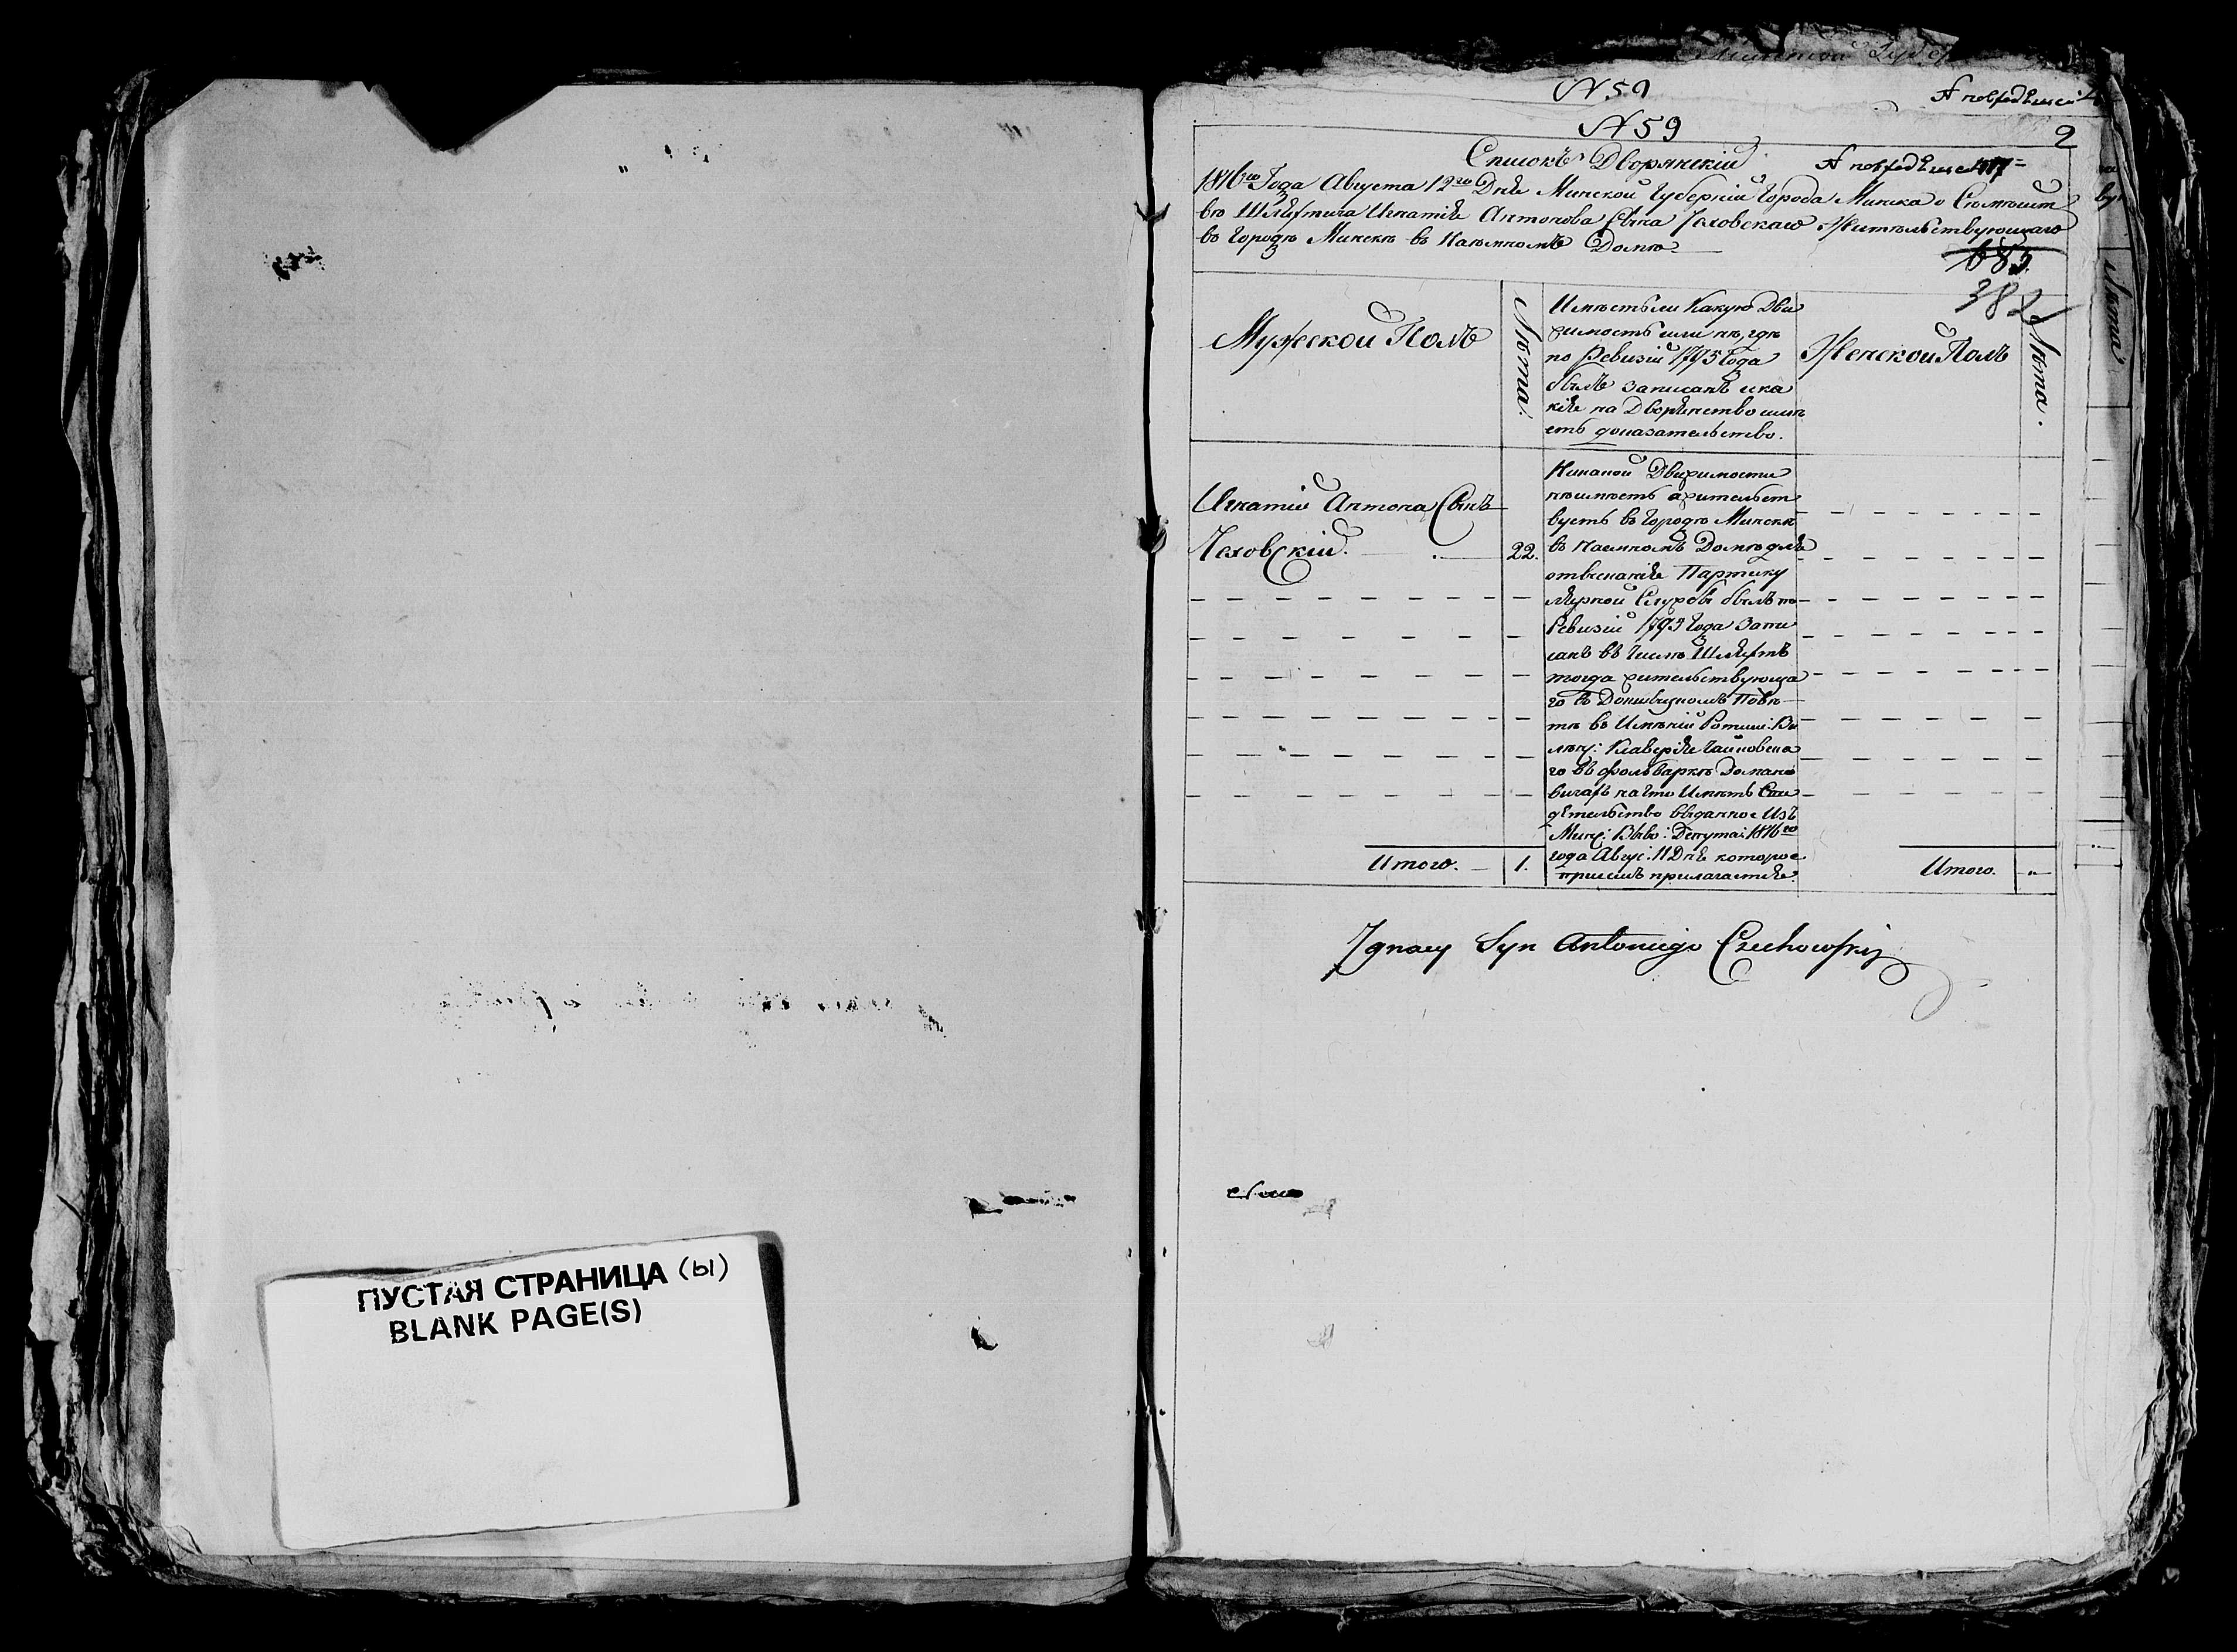 ПУСТАЯ СТРАНИЦА (ы)
BLANK PAGE(S)
N 59
N 59
2
Списокъ Дворянскій
1816го Года Августа 12го Дня Минской Губерніи Города Минска о Состоящ
въ Шляхтича Игнатія Антонова Сына Чеховскаго Жительствующаго
въ Городѣ Минскѣ въ Наемномъ Домѣ
685
382
Мужеской Полъ
Лѣта.
Имѣетъ ли какую Дви
жимость или нѣ, гдѣ
по Ревизіи 1795 Года
былъ записанъ и ка
кіе на Дворянство имѣ
етъ доказательство.
Женской Полъ
Лѣта.
Игнатій Антона Сынъ
Чеховскій. 22.
Никакой Движимости
не имѣетъ а жительст
вуетъ въ Городѣ Минскѣ
въ Наемномъ Домѣ для
отысканія Партику
лярной Службы былъ по
Ревизіи 1795 Года Запи
санъ въ Числѣ Шляхтъ
тогда жительствующа
го въ Повѣ
тѣ въ Имѣніи Ротми:
го въ фольваркѣ Домано
вичахъ на что Имѣетъ Сви
дѣтельство выданное Изъ
Минс: Депутаи: 1816го
года Авгус: 11 Дня которое
присемъ прилагается.
Итого. 1.
Итого. „
Jgnacy Syn Antoniego Czechowski